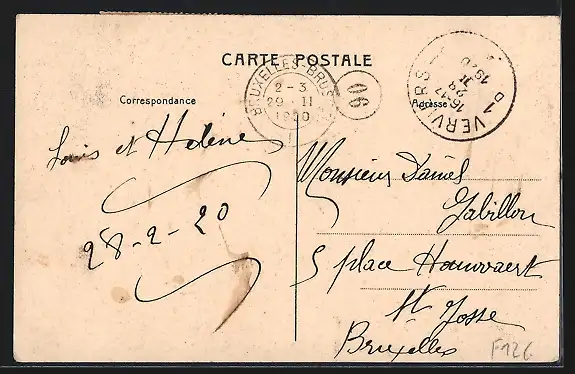 CARTE POSTALE
Correspondance
Adresse
BRUXELLES-BRUSSEL
2-3
29 II
1920
90
VERVIERS
16-17
28
II
1920
Louis et Helène
28-2-20
Monsieur Daniel
Gabillon
5 place Houwaert
St Josse
Bruxelles
F12G